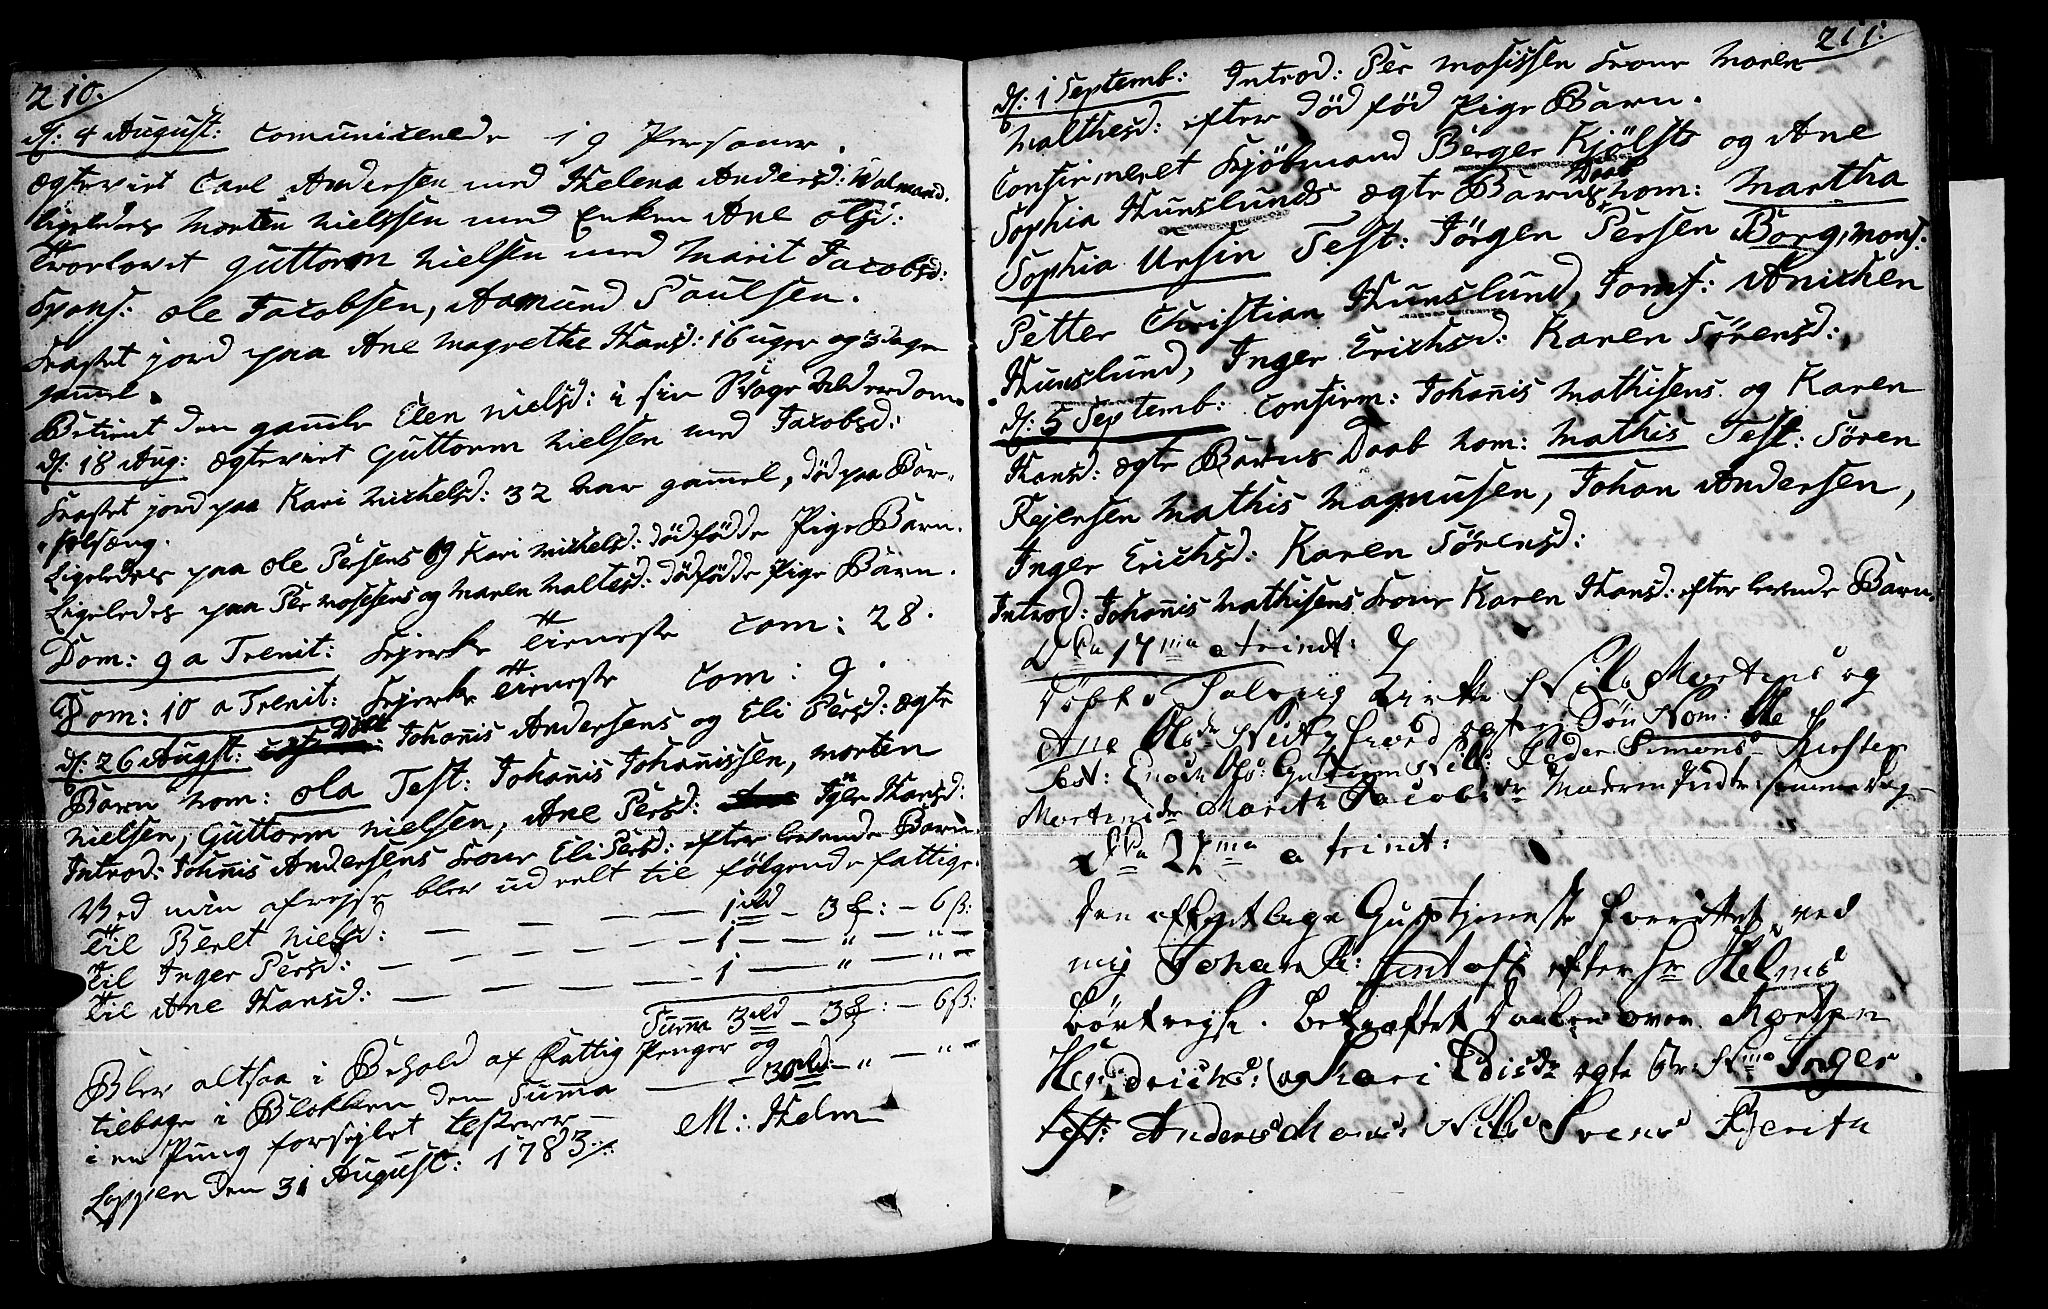 210.
d: 4 August: Comunicerede 19 Personer.
Ægteviet Carl Andersen med Helena Andersd: Walmand.
ligeledes Morten Nielssen med Enken Ane Olsd:
Trolovet Guttorm Nielsen med Marit Jacobsd:
Spons: Ole Jacobsen, Aamund Poulsen.
Kastet jord paa Ane Magrethe Hansd: 16 uger og 3 dage
gamel.
Betient den gamle Elen Nielsd: i sin
d: 18 Aug: Ægteviet Guttorm Nielsen med Jacobsd:
Kastet jord paa Kari Michelsd: 32 Aar gamel, død paa Bar-
selsæng.
Ligeledes paa Ole Persens og Kari Michelsd: dødfødde Pige Barn.
Ligeledes paa Per Mosesens og Maren Maltesd: dødfødde Pige Barn.
Dom: 9 a Trenit: Kjerke Tieneste Com: 28.
Dom: 10 a Trenit: Kjerke Tieneste Com: 9.
d: 26 Augst: Døbt Johanis Andersens og Eli Persd: ægte
Barn Nom: Ola Test: Johanis Johanissen, Morten
Nielsen, Guttorm Nielsen, Ane Persd: Hansd:
Introd: Johnis Andersens Kone Eli Persd: efter levende Barn.
Ved min afrejse blev uddelt til følgende fattige.
Til Beret Nielsd: — — — — 1 rd — 3 — 6 ß:
Til Inger Persd: — — — — 1 — — " — " —
Til Ane Hansd: — — — — 1 — — " — " —
Suma 3 rd — 3 — 6 ß:
Blev altsaa i Behold af Fattig Penger og
tilbage i Blokken den Suma — — 30 rd — " — " —
i en Pung forseglet testerer —
M: Helm
Loppen den 31 August: 1783.
211.
d: 1 Septemb: Introd: Per Mosissen Kone Maren
Malthesd: efter død fød Pige Barn.
Confirmeret Kjøbmand Berger Kjølsts og Ane
Sophia Hunslunds ægte Barns Daab Nom: Martha
Sophia Ursin Test: Jörgen Persen Borg, Mons:
Petter Christian Hunslund, Jomf: Anichen
Hunslund, Inger Erichsd: Karen Sörensd:
d: 5 Septemb: Confirm: Johanis Mathisens og Karen
Hansd: ægte Barns Daab Nom: Mathis Test: Sören
Rejersen Mathis Magnusen, Johan Andersen,
Inger Erichsd: Karen Sörensd:
Introd: Johanis Mathisens Kone Karen Hansd: efter levende Barn.
Dca 17ma a trinit:
Döbt i Talviig Kirke Nils Mortens og
Ane Olsdr ægte Sön Nom: Ole
test: Enoch Ols: Guttorm Nils: Peder Simons Kirsten
Mortensdr Marith Jacobsdr Moderen Introd: samme Dag
Dca 21ma a trinit:
den offentlige Gudstjeneste forrettet ved
mig Johan efter Hr Helms
bortrejse. Bekreftet Daaben over Morten
Hendrichs: og Kari ægte Br: Nme Inger
test: Anders Mons Nils Svens Berith